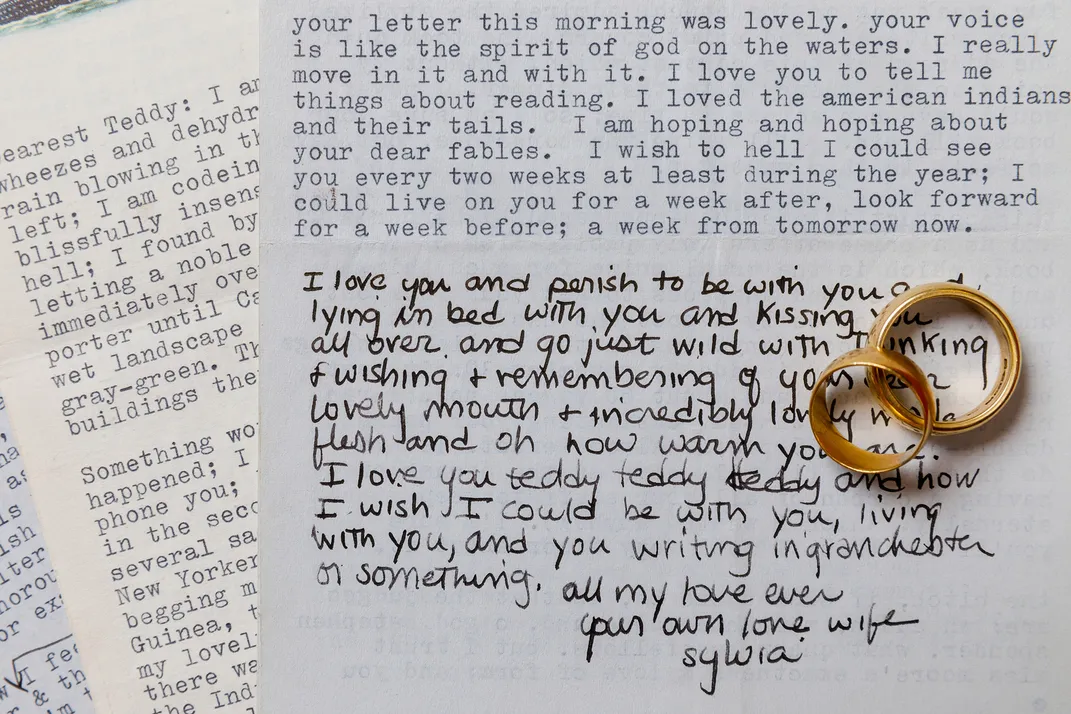 your letter this morning was lovely. your voice
is like the spirit of god on the waters. I really
move in it and with it. I love you to tell me
things about reading. I loved the american indians
and their tails. I am hoping and hoping about
your dear fables. I wish to hell I could see
you every two weeks at least during the year; I
could live on you for a week after, look forward
for a week before; a week from tomorrow now.
I love you and perish to be with you and
lying in bed with you and kissing you
all over and go just wild with thinking
+ wishing + remembering of your
lovely mouth + incredibly lovely
flesh and oh how warm you are.
I love you teddy teddy teddy and how
I wish I could be with you, living
with you, and you writing in granchester
or something. all my love ever
your own love wife
sylvia
earest Teddy: I am
wheezes and dehydr
rain blowing in th
left; I am codein
blissfully insens
hell; I found by
letting a noble
immediately ove
porter until Ca
wet landscape
gray-green. Th
buildings the
Something wo
happened; I
phone you;
in the seco
several sa
New Yorker
begging m
Guinea, t
my lovel
there wa
the Ind
ish
iter
horou
or ex
I fee
r & th